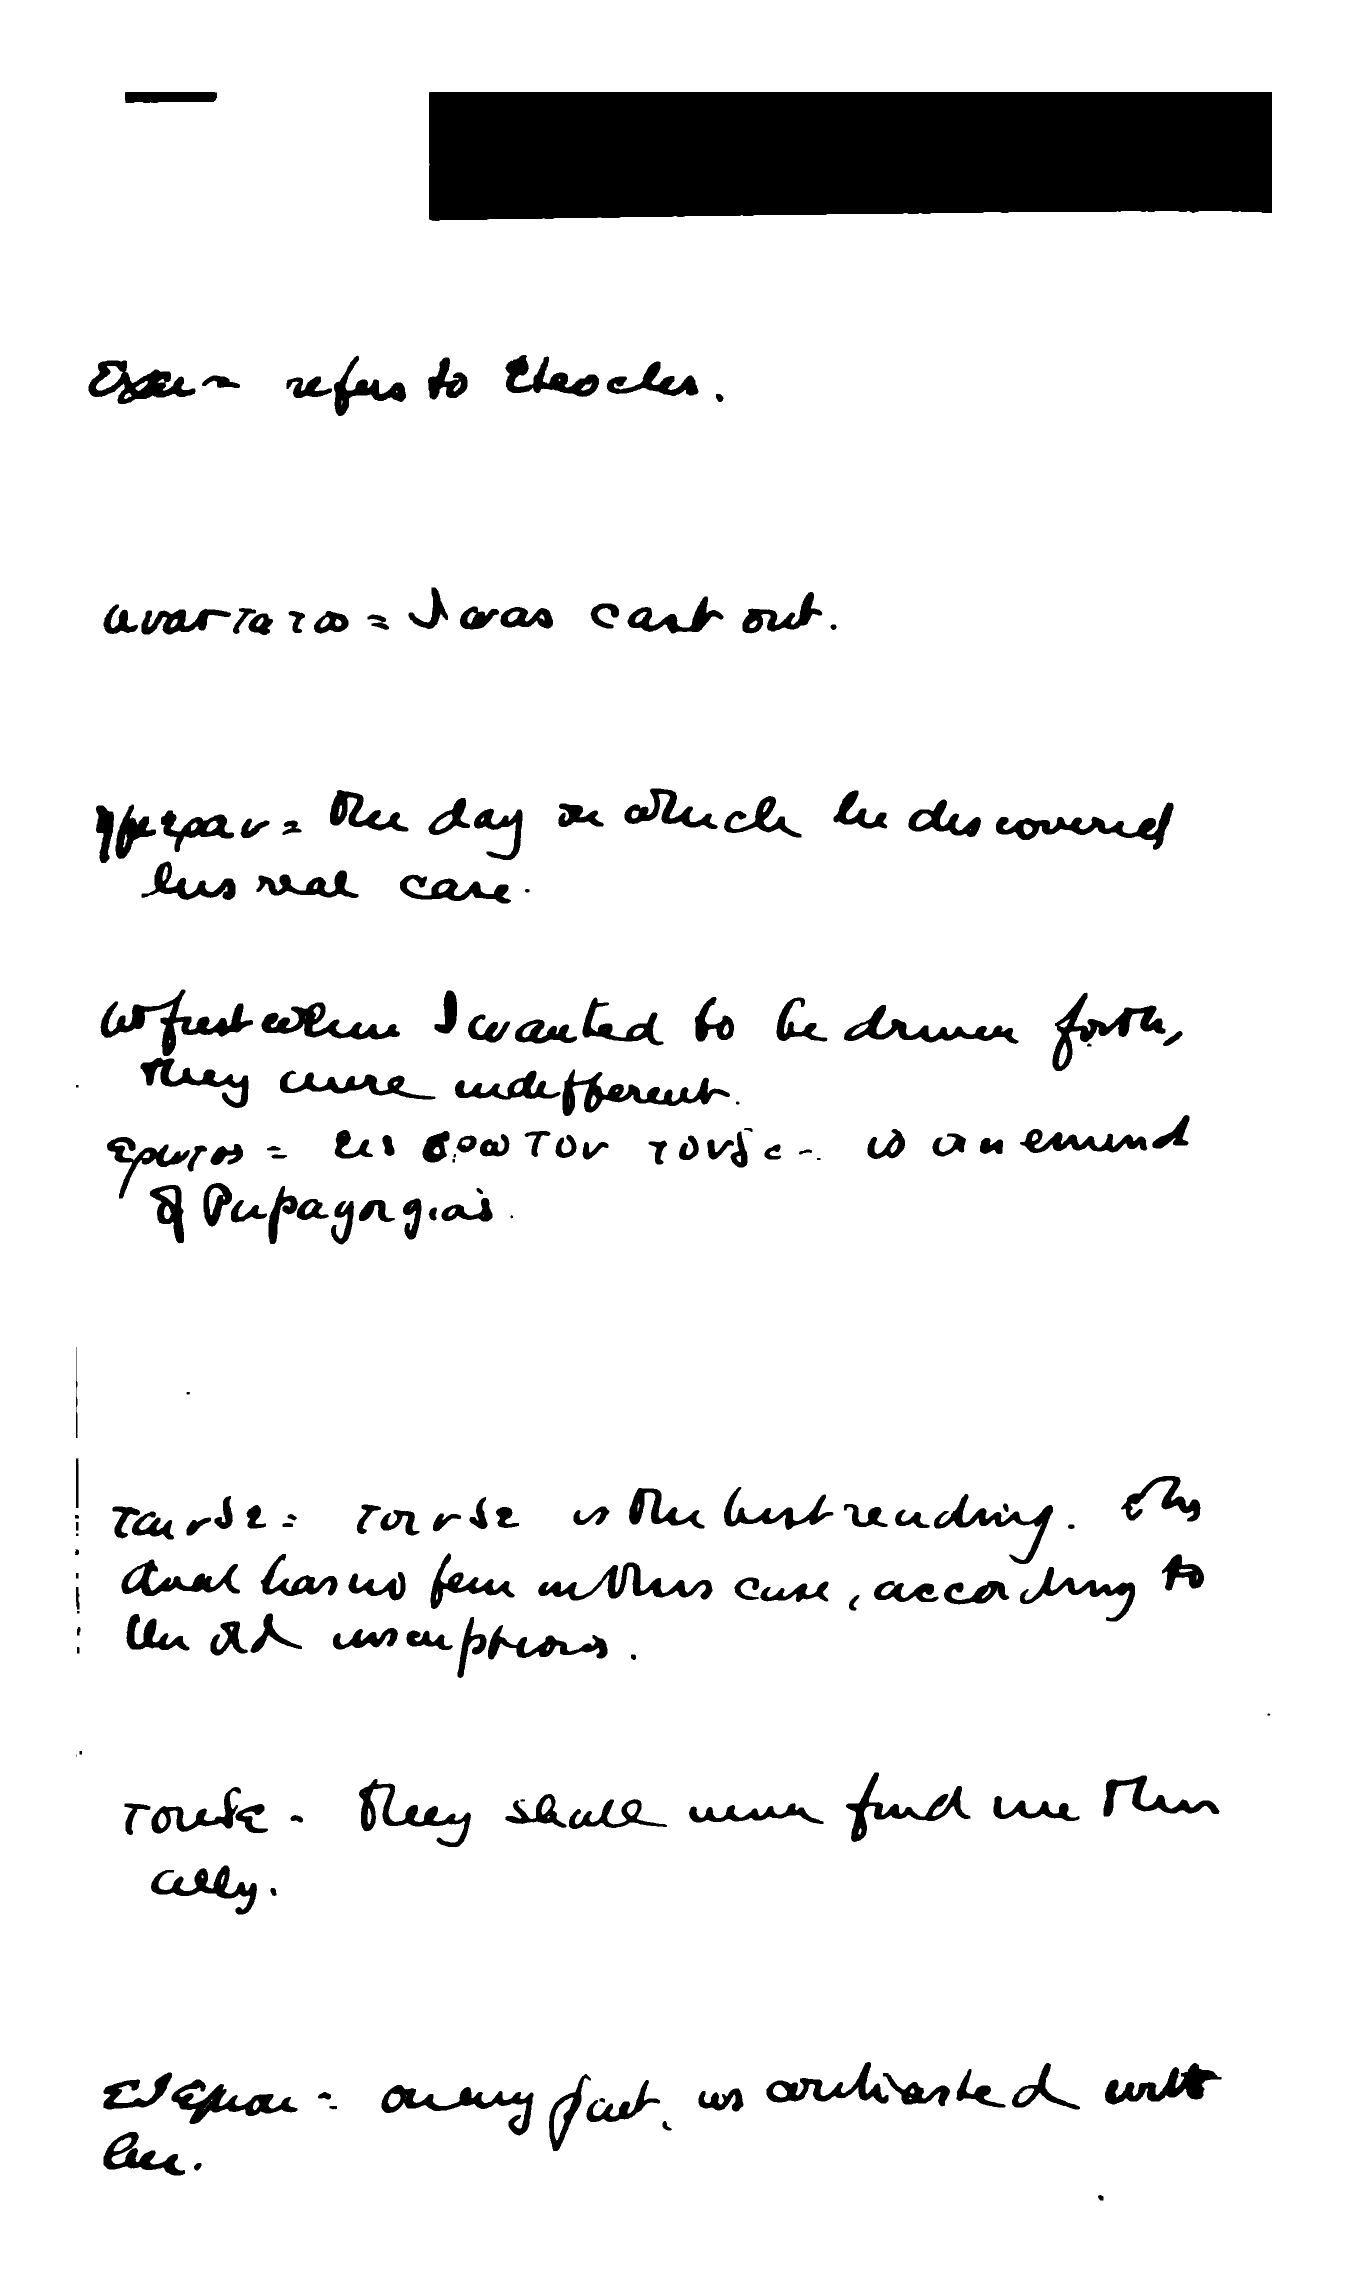 refers to Eteocles.
αναστατος = I was cast out.
ημεραν = the day on which he discovered
his real case.
At first when I wanted to be driven forth,
they were indifferent.
ερωτος = εις ερωτον τουδε - is an emend
of Papageorgias.
ταινδε = τοινδε is the best reading. This
dual has no fem in this case, according to
the old inscriptions.
τουδε - They shall never find me their
ally.
- on my part, as contrasted with